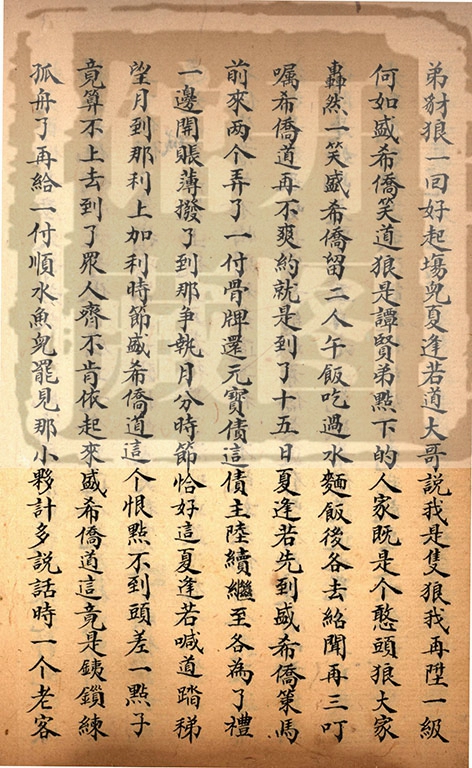 弟犲狼一回好起塲皃夏逢若道大哥說我是隻狼我再陞一級
何如盛希僑笑道狼是譚賢弟㸃下的人家既是个憨頭狼大家
轟然一笑盛希僑留二人午飯吃過水麵飯後各去紹聞再三叮
嘱希僑道再不爽約就是到了十五日夏逢若先到盛希僑策馬
前來两个弄了一付骨牌還元寳債這債主陸續繼至各為了禮
一邊開賬薄撥了到那爭執月分時節恰好這夏逢若喊道踏稊
望月到那利上加利時節盛希僑道這个恨㸃不到頭差一㸃子
竟算不上去到了眾人齊不肯依起來盛希僑道這竟是銕鎻練
孤舟了再給一付順水魚皃罷見那小夥計多説話時一个老客